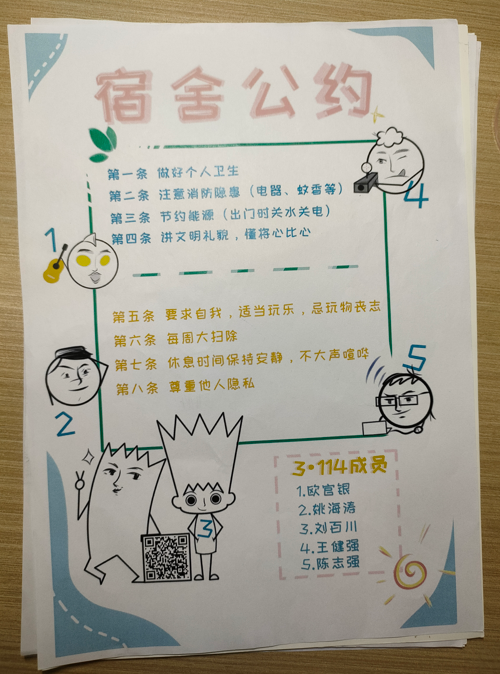 宿舍公约
第一条 做好个人卫生
第二条 注意消防隐患（电器、蚊香等）
第三条 节约能源（出门时关水关电）
第四条 讲文明礼貌，懂将心比心
第五条 要求自我，适当玩乐，忌玩物丧志
第六条 每周大扫除
第七条 休息时间保持安静，不大声喧哗
第八条 尊重他人隐私
1
2
3
4
5
3·114成员
1.欧宫银
2.姚海涛
3.刘百川
4.王健强
5.陈志强